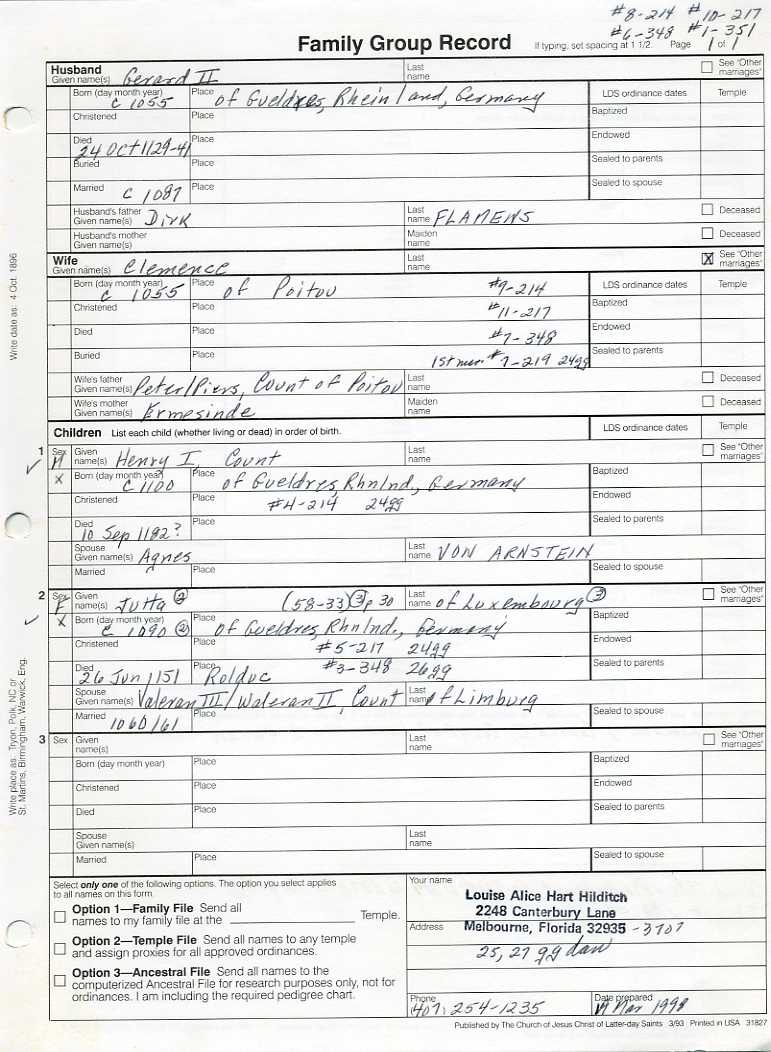 #8-214 #10-217
#6-348 #1-351
Family Group Record
If typing, set spacing at 1 1/2. Page 1 of 1
Husband
Given name(s) Gerard II
Last name
See "Other marriages"
Born (day month year) c 1055 Place of Gueldres, Rheinland, Germany
LDS ordinance dates Temple
Christened Place Baptized
Died 24 Oct 1129-41 Place Endowed
Buried Place Sealed to parents
Married c 1087 Place Sealed to spouse
Husband's father Given name(s) Dirk Last name FLAMENS Deceased
Husband's mother Given name(s) Maiden name Deceased
Wife
Given name(s) Clemence
Last name
X See "Other marriages"
Born (day month year) c 1055 Place of Poitou #9-214
LDS ordinance dates Temple
Christened Place #11-217 Baptized
Died Place #7-348 Endowed
Buried Place 1st mar. #7-219 24gg Sealed to parents
Wife's father Given name(s) Peter/Piers, Count of Poitou Last name Deceased
Wife's mother Given name(s) Ermesinde Maiden name Deceased
Children List each child (whether living or dead) in order of birth. LDS ordinance dates Temple
1 Sex M Given name(s) Henry I, Count Last name See "Other marriages"
X Born (day month year) c 1100 Place of Gueldres, Rhnlnd., Germany Baptized
Christened Place #4-214 24gg Endowed
Died 10 Sep 1182? Place Sealed to parents
Spouse Given name(s) Agnes Last name VON ARNSTEIN
Married Place Sealed to spouse
2 Sex F Given name(s) Jutta ② (58-33)③p 30 Last name of Luxembourg ③ See "Other marriages"
X Born (day month year) c 1090 ② Place of Gueldres, Rhnlnd., Germany Baptized
Christened Place #5-217 24gg Endowed
Died 26 Jun 1151 Place Rolduc #3-348 26gg Sealed to parents
Spouse Given name(s) Valeran III/Waleran II, Count Last name of Limburg
Married 1060/61 Place Sealed to spouse
3 Sex Given name(s) Last name See "Other marriages"
Born (day month year) Place Baptized
Christened Place Endowed
Died Place Sealed to parents
Spouse Given name(s) Last name
Married Place Sealed to spouse
Write date as: 4 Oct. 1896
Write place as: Tryon, Polk, NC or
St. Martins, Birmingham, Warwick, Eng.
Select only one of the following options. The option you select applies
to all names on this form.
Option 1—Family File Send all
names to my family file at the Temple.
Option 2—Temple File Send all names to any temple
and assign proxies for all approved ordinances.
Option 3—Ancestral File Send all names to the
computerized Ancestral File for research purposes only, not for
ordinances. I am including the required pedigree chart.
Your name
Louise Alice Hart Hilditch
2248 Canterbury Lane
Address Melbourne, Florida 32935 -3707
25, 27 gg dau
Phone (407) 254-1235
Date prepared Mar 1998
Published by The Church of Jesus Christ of Latter-day Saints 3/93 Printed in USA 31827